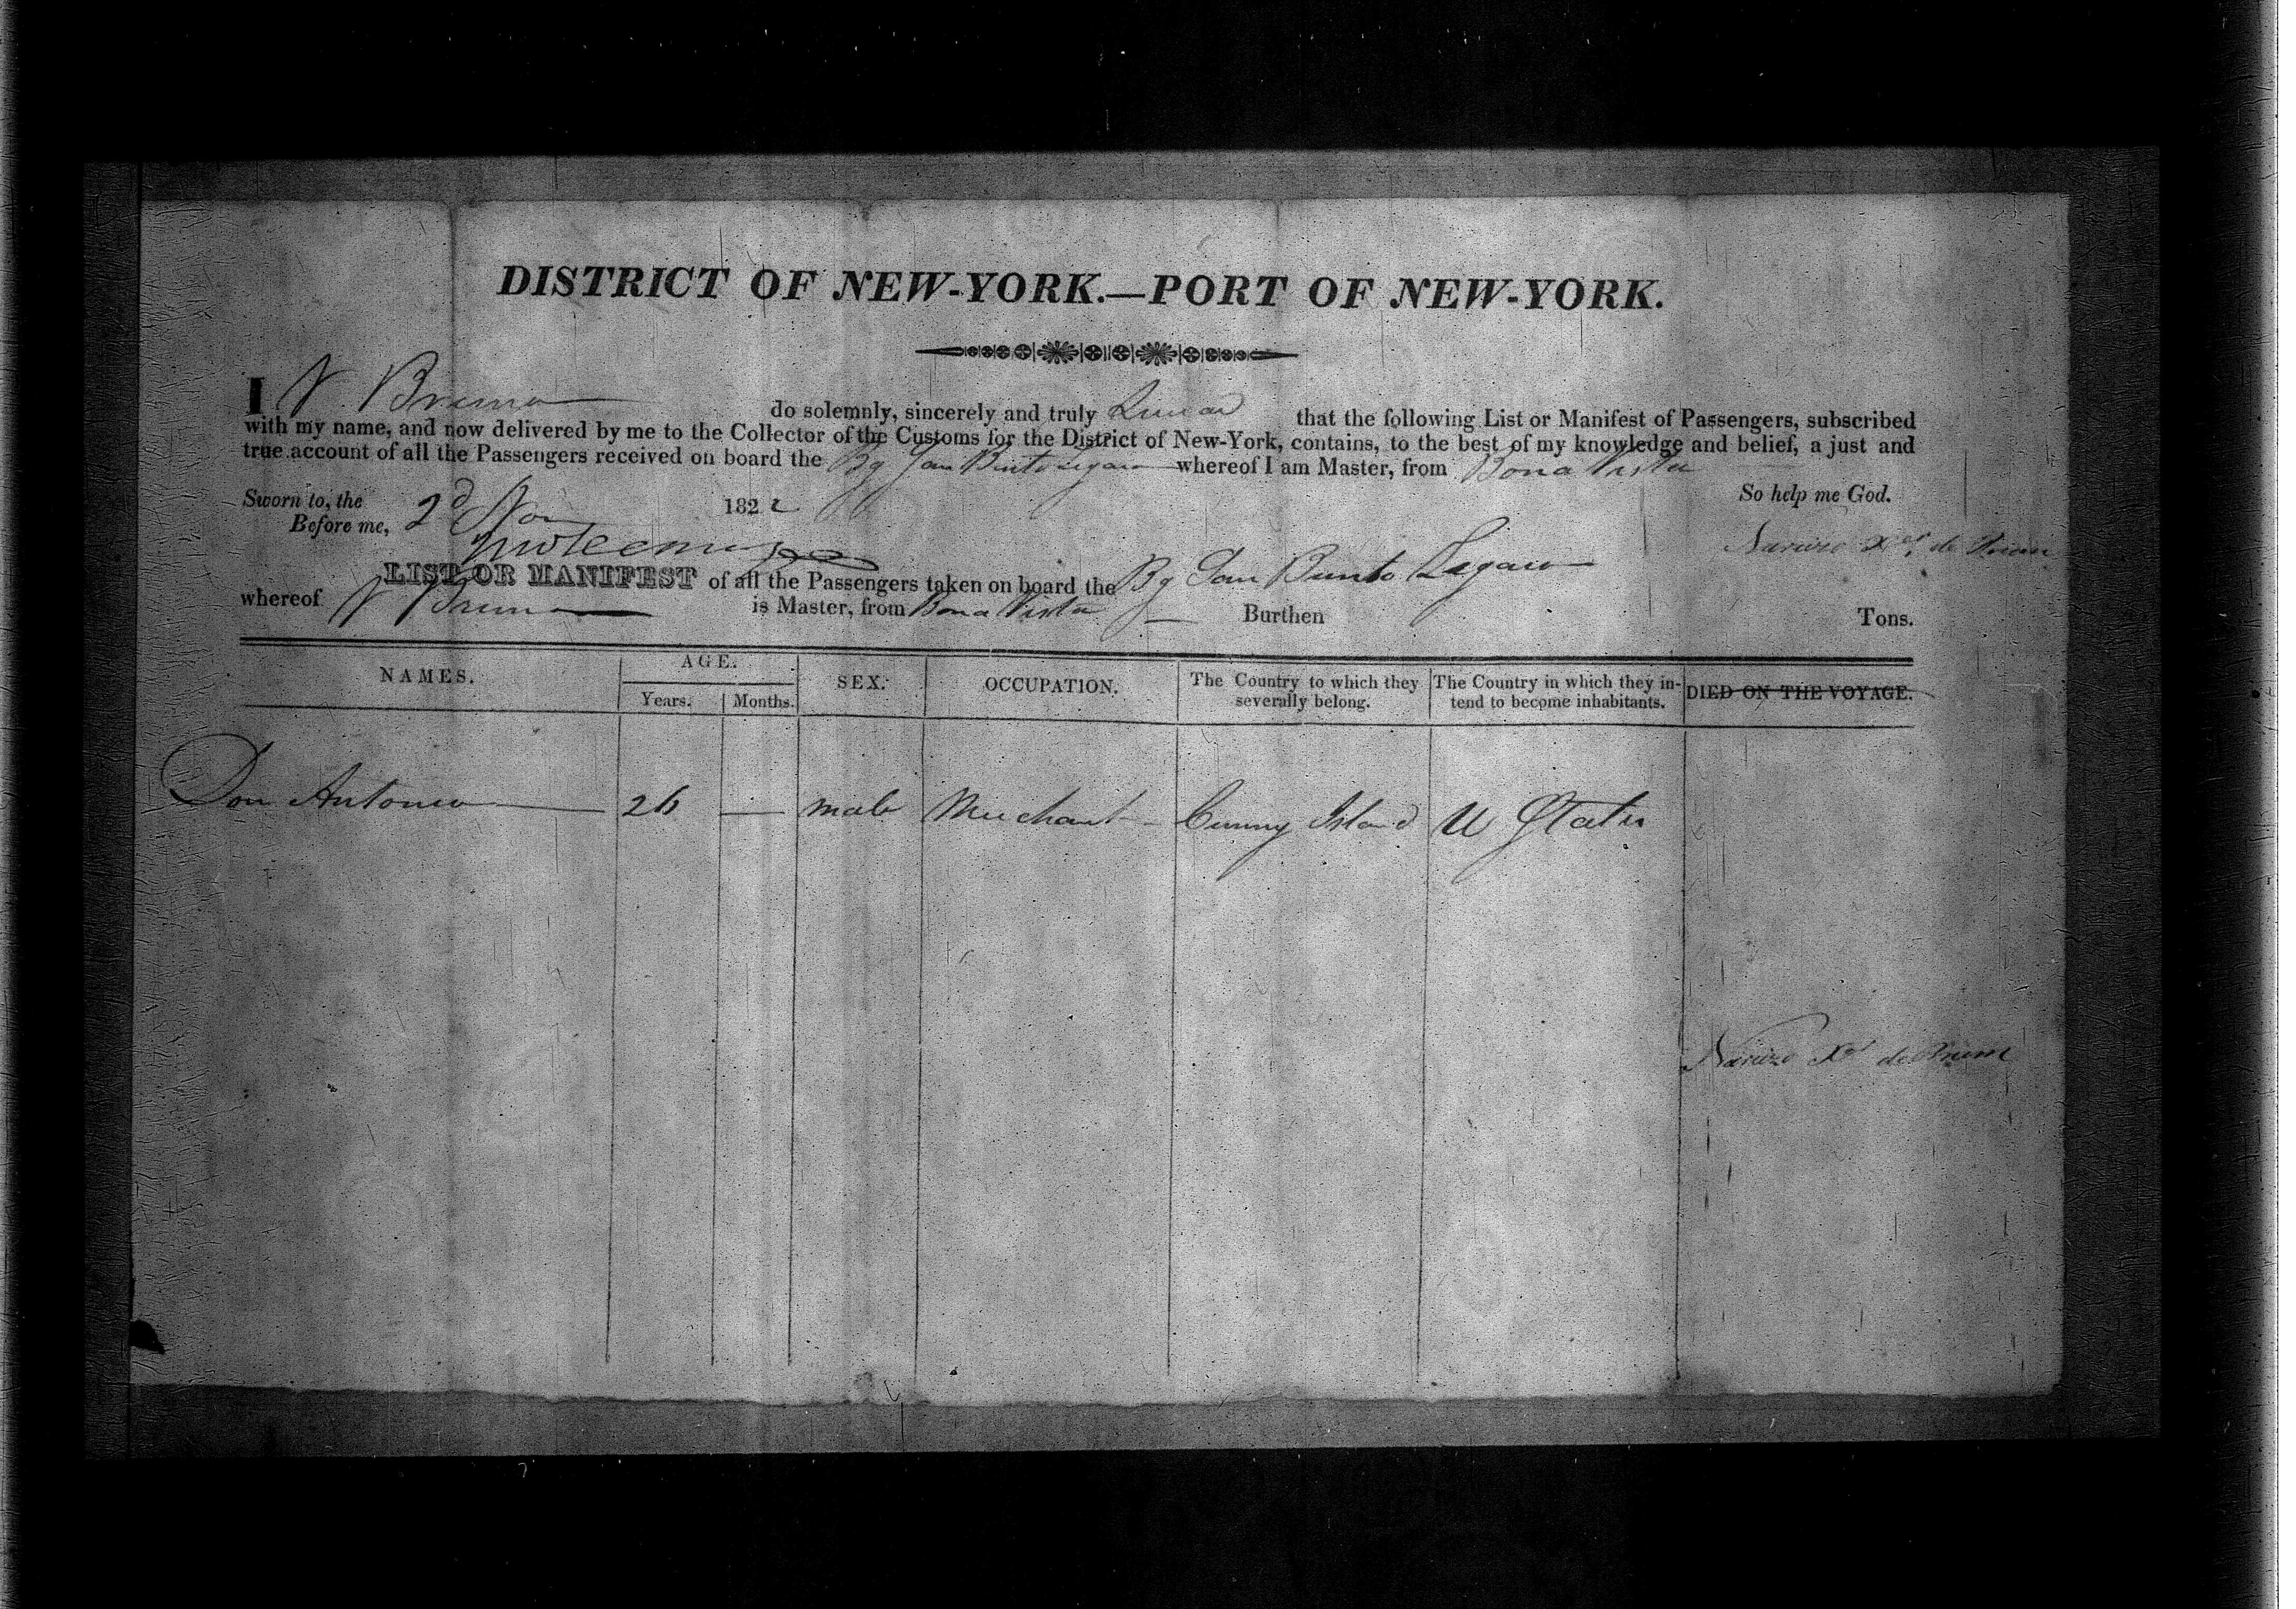 DISTRICT OF NEW-YORK.—PORT OF NEW-YORK.
I N. Bruno do solemnly, sincerely and truly Swear that the following List or Manifest of Passengers, subscribed
with my name, and now delivered by me to the Collector of the Customs for the District of New-York, contains, to the best of my knowledge and belief, a just and
true account of all the Passengers received on board the Bg San whereof I am Master, from Bona Vista
So help me God.
Sworn to, the 2d Nov 1822
Before me,
LIST OR MANIFEST of all the Passengers taken on board the Bg San
whereof N Bruno is Master, from Bona Vista Burthen Tons.
NAMES. AGE. SEX. OCCUPATION. The Country to which they severally belong. The Country in which they intend to become inhabitants. DIED ON THE VOYAGE.
Years. Months.
Don Antonio — 26 — male Merchant — Island U States
Narcizo de